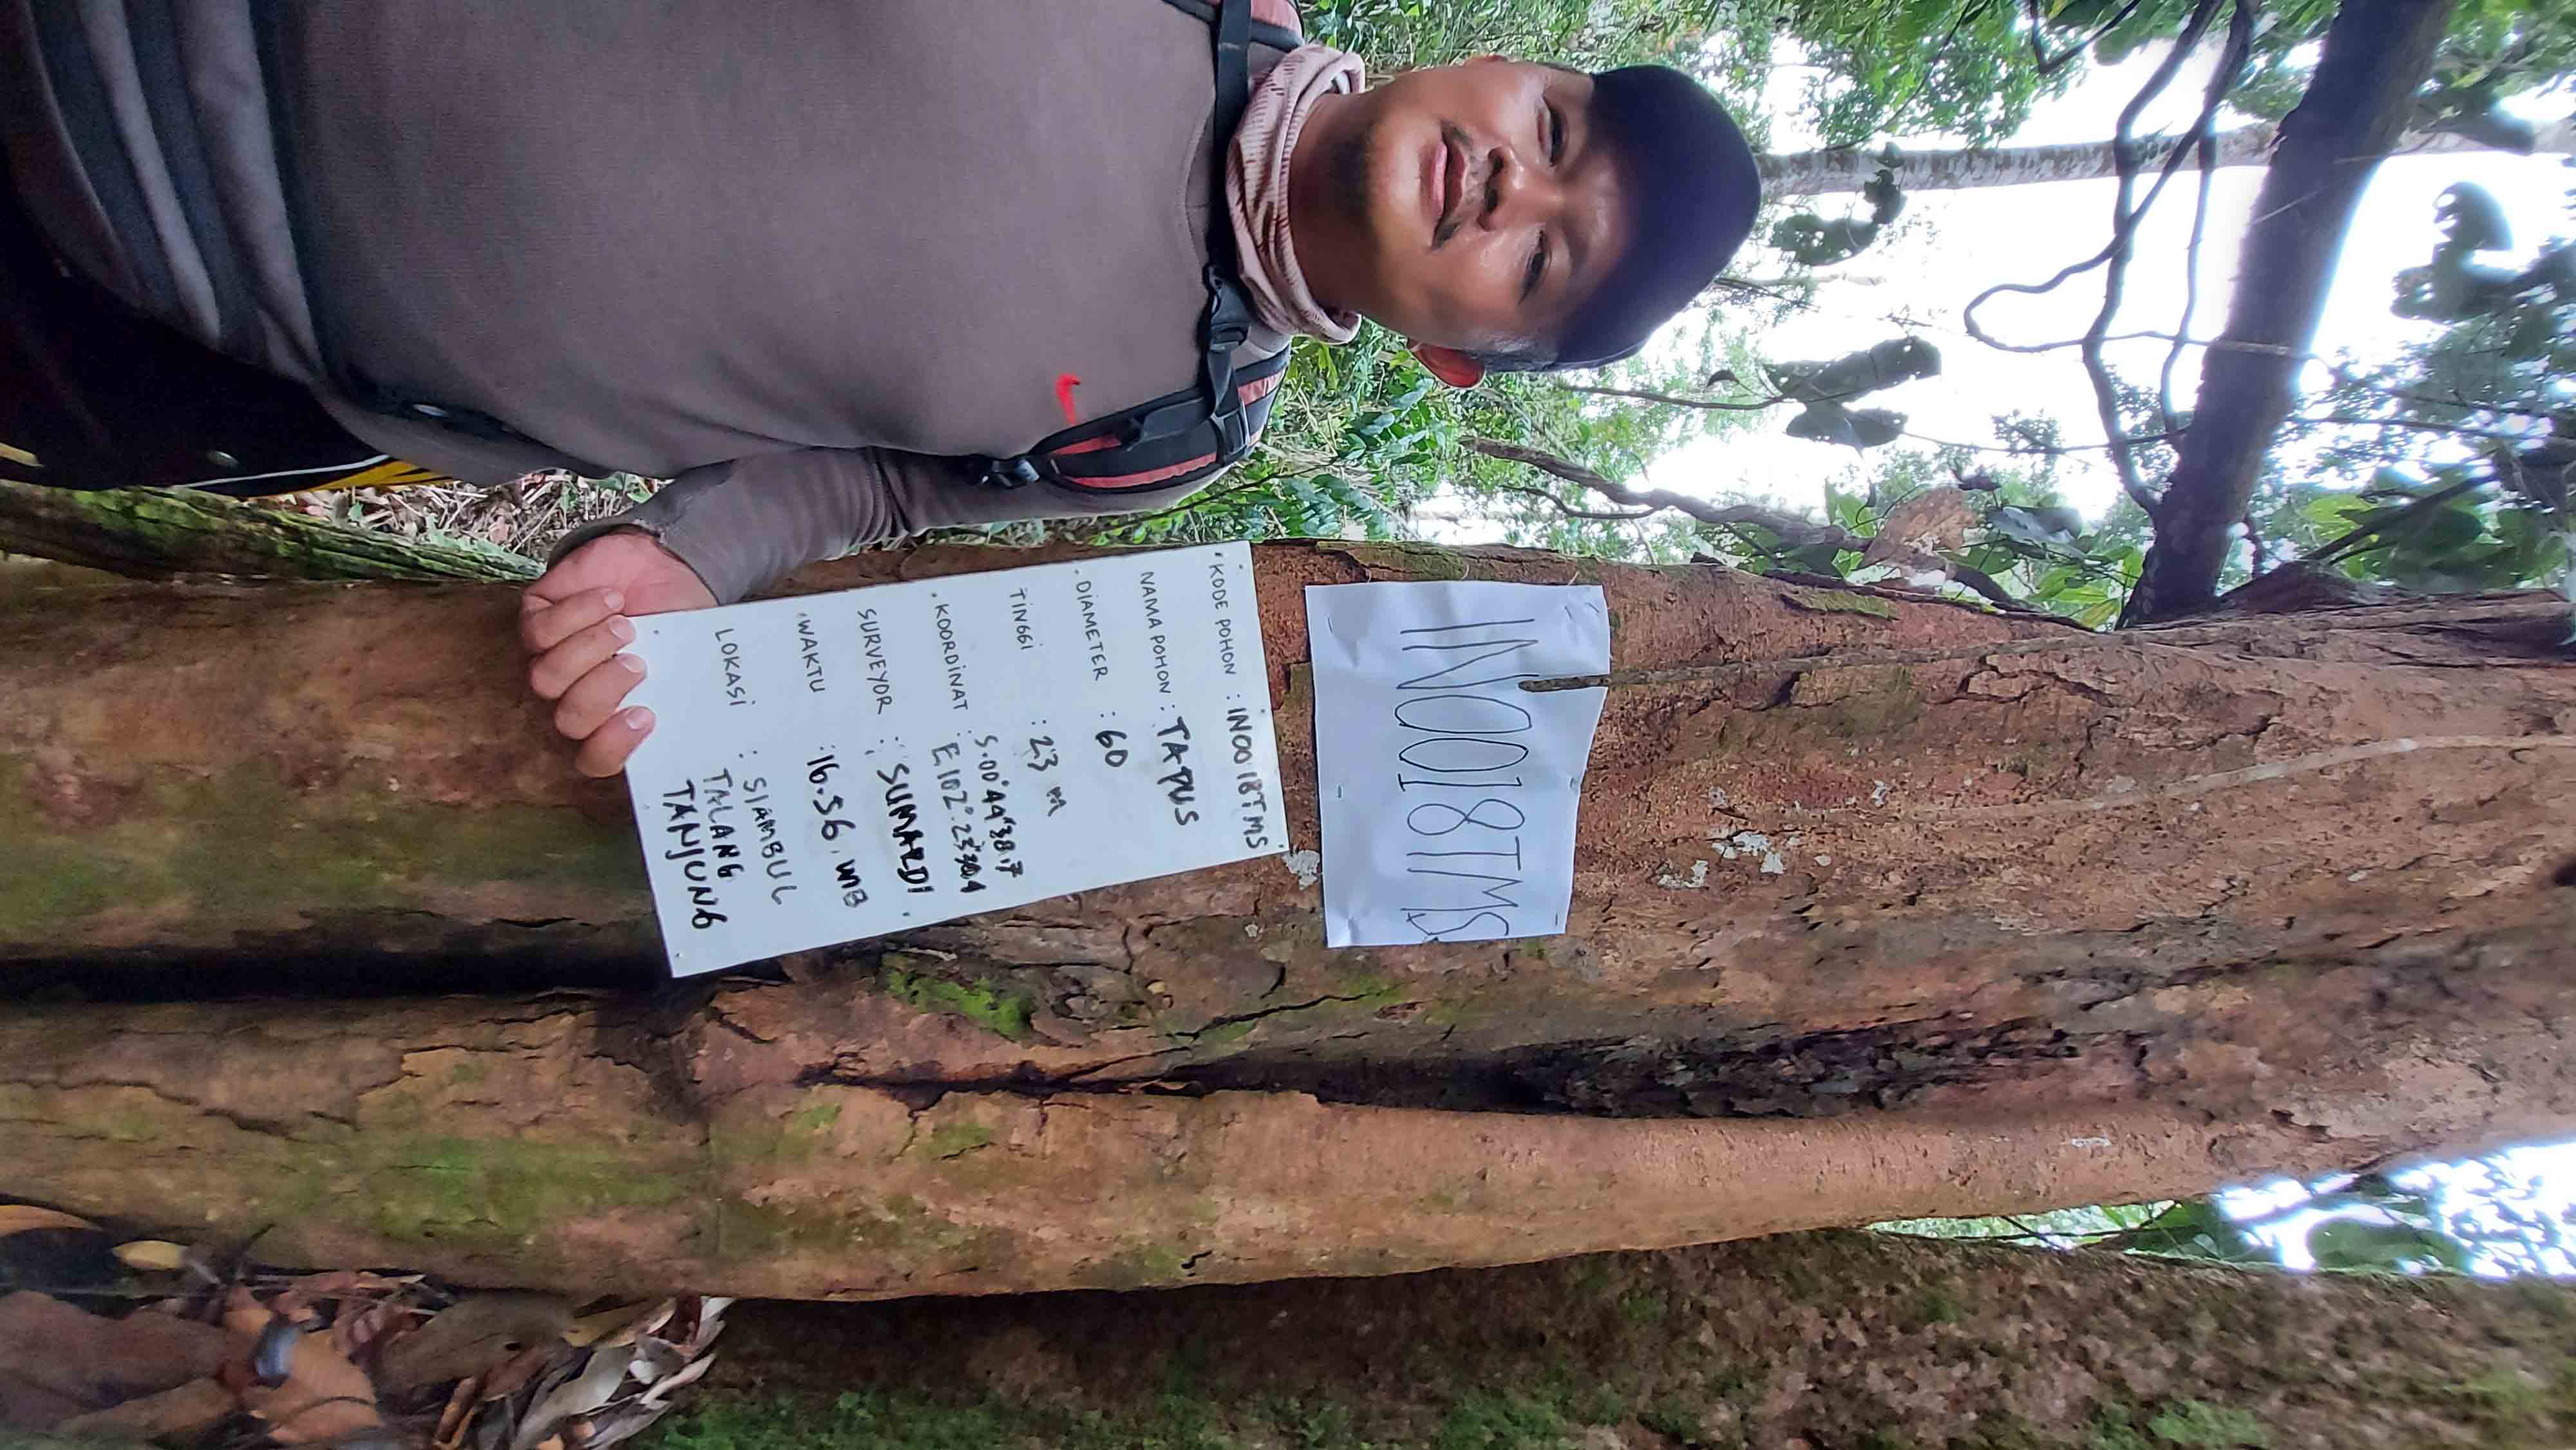 IN0018TMS
KODE POHON : IN0018TMS
NAMA POHON : TAPUS
DIAMETER : 60
TINGGI : 23 M
S.00°44"38.7
KOORDINAT : E102°.23"
SURVEYOR : SUMARDI
WAKTU : 16.56. WIB
LOKASI : SIAMBUL
TALANG
TANJUNG